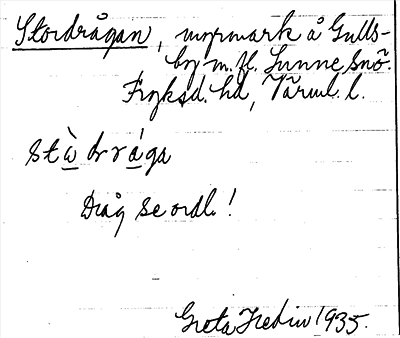 Stordrågan, myrmark å Gulls-
by m. fl. Sunne snö.
Fryksd. hd, Värml. l.
stòdrága
Dråg se ordl.!
Greta Hedin 1935.